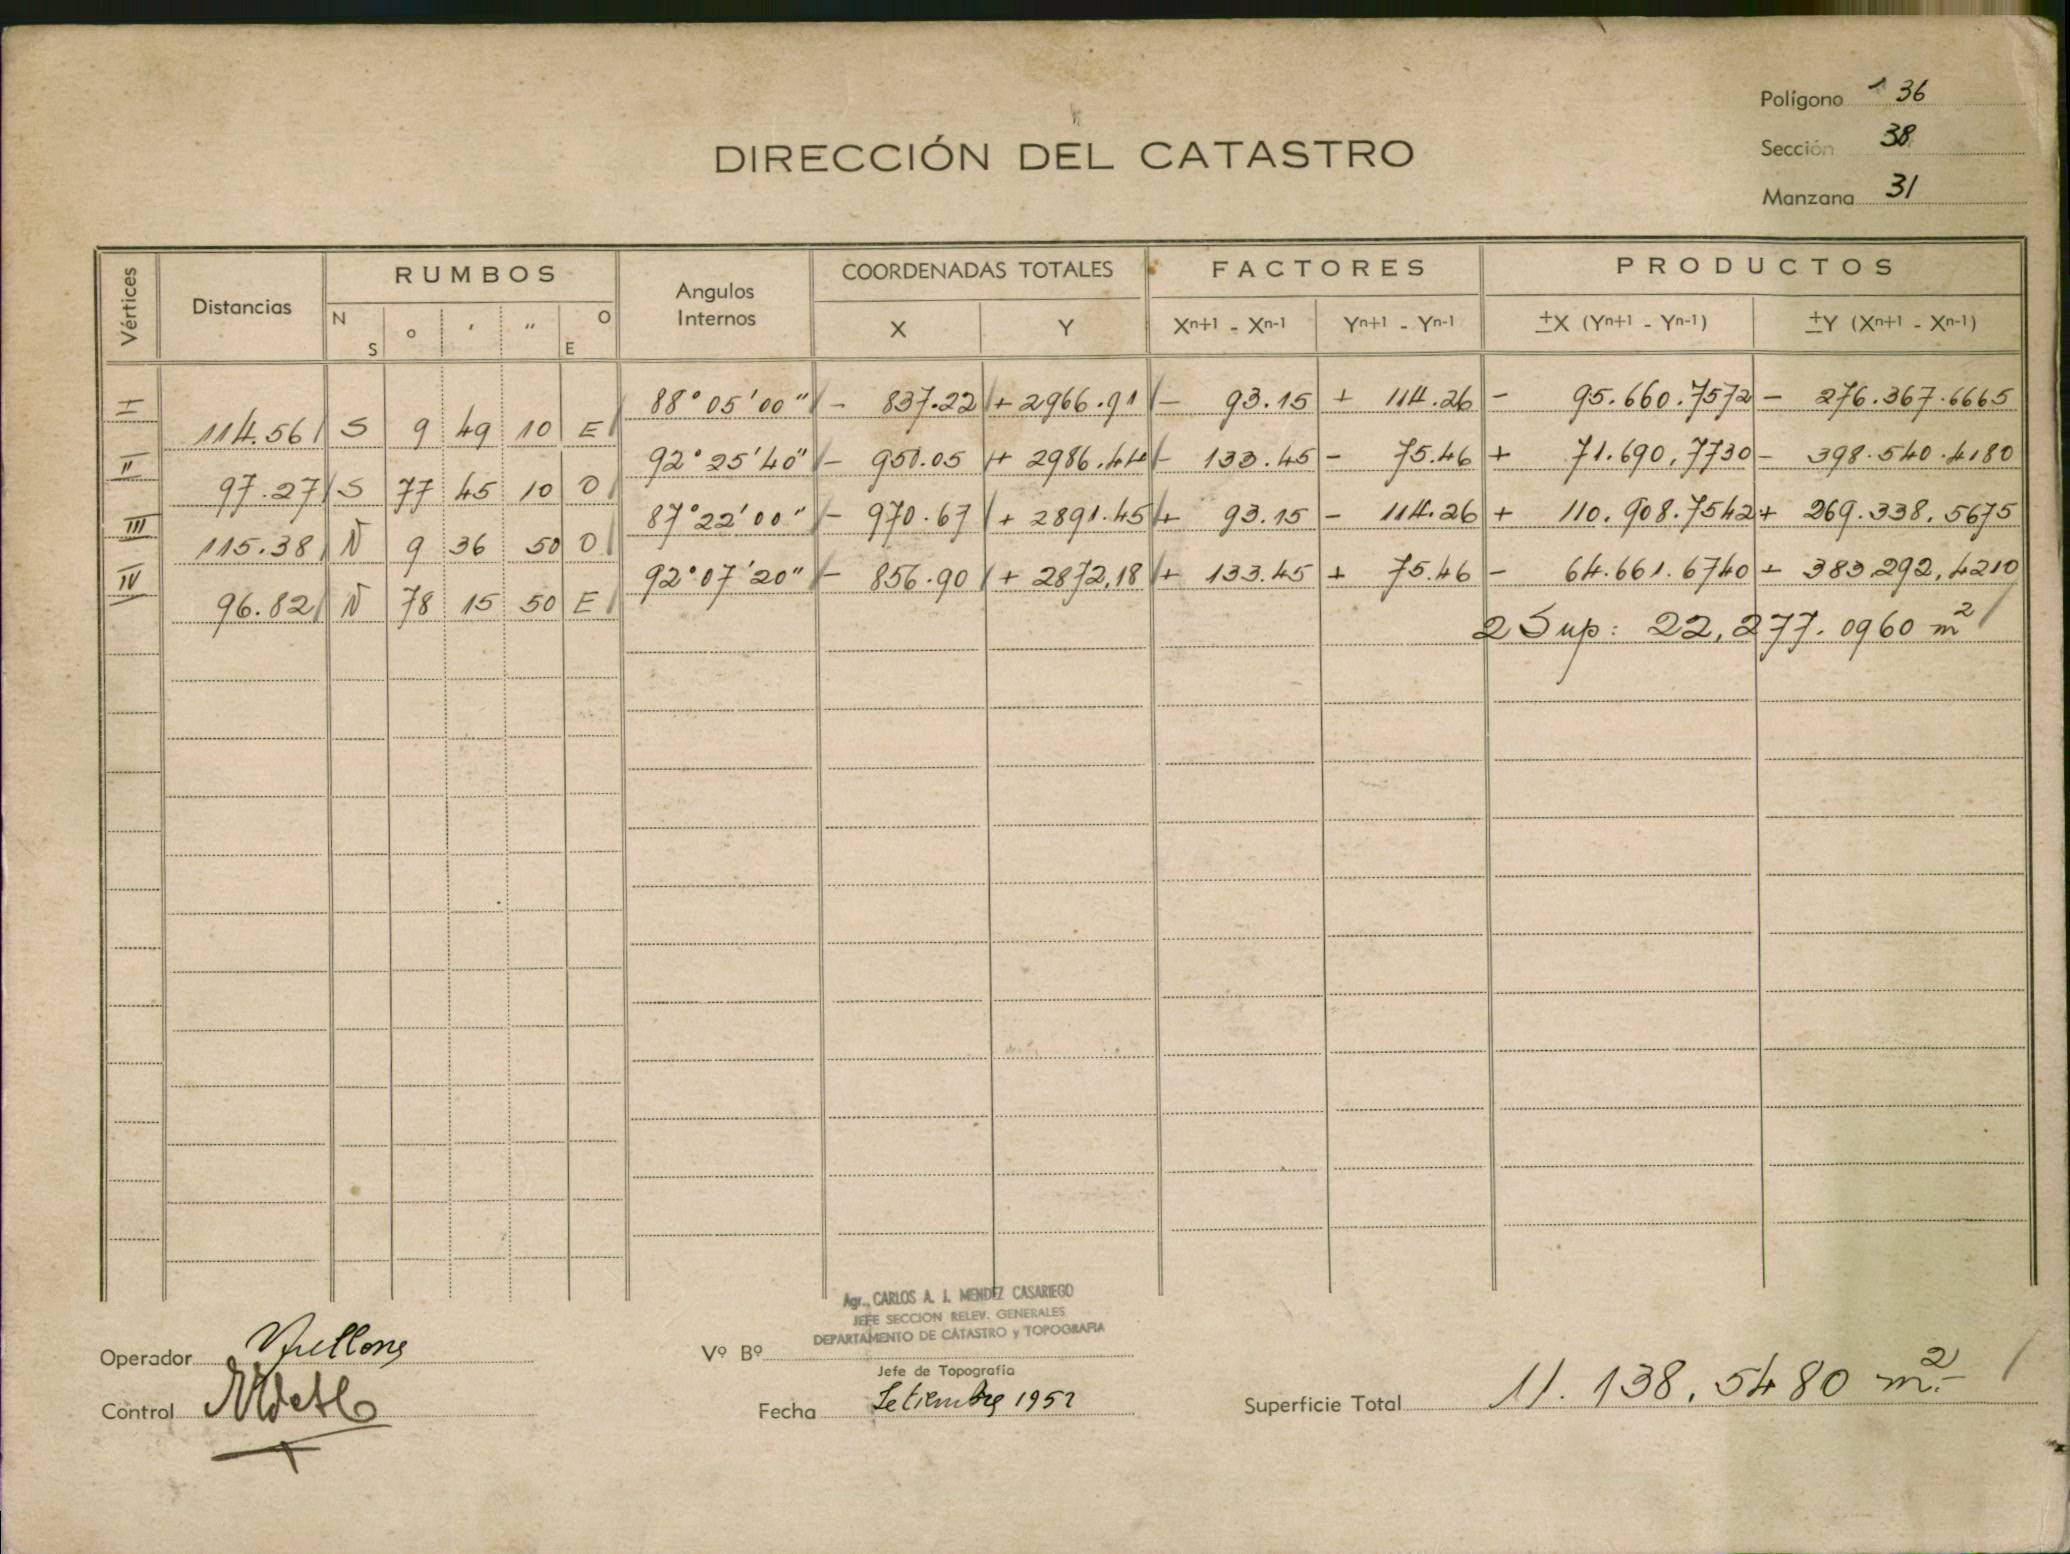 Polígono 36
Sección 38
Manzana 31
DIRECCIÓN DEL CATASTRO
Vértices Distancias RUMBOS Angulos Internos COORDENADAS TOTALES FACTORES PRODUCTOS
N S ° ' " O E X Y Xn+1 - Xn-1 Yn+1 - Yn-1 ±X (Yn+1 - Yn-1) ±Y (Xn+1 - Xn-1)
I 88° 05' 00" - 837.22 + 2966.91 - 93.15 + 114.26 - 95.660.7572 - 276.367.6665
114.56 S 9 49 10 E
II 92° 25' 40" - 950.05 + 2986.44 - 133.45 - 75.46 + 71.690,7730 - 398.540.4180
97.27 S 77 45 10 O
III 87° 22' 00" - 970.67 + 2891.45 + 93.15 - 114.26 + 110.908.7542 + 269.338,5675
115.38 N 9 36 50 O
IV 92° 07' 20" - 856.90 + 2872,18 + 133.45 + 75.46 - 64.661.6740 + 383.292,4210
96.82 N 78 15 50 E
2 Sup: 22,277.0960 m²
Agr. CARLOS A. J. MENDEZ CASARIEGO
JEFE SECCION RELEV. GENERALES
DEPARTAMENTO DE CATASTRO y TOPOGRAFIA
Operador
Vº Bº
Jefe de Topografía
Control
Fecha Setiembre 1952
Superficie Total 11.138,5480 m².-